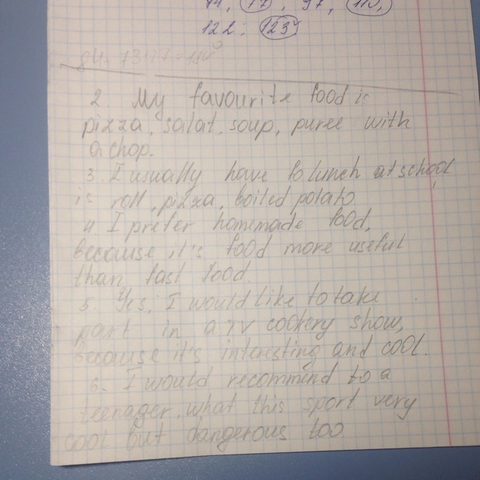 74, 77, 97, 110,
122. 123
2 My favourite food is
pizza, salat, soup, puree with
a chop.
3 I usually have to lunch at school
is roll, pizza, boiled potato
4 I prefer homemade food,
because it's food more useful
than fast food
5 Yes, I would like to take
part in a TV cookery show,
because it's interesting and cool.
6. I would recommend to a
teenager what this sport very
cool but dangerous too